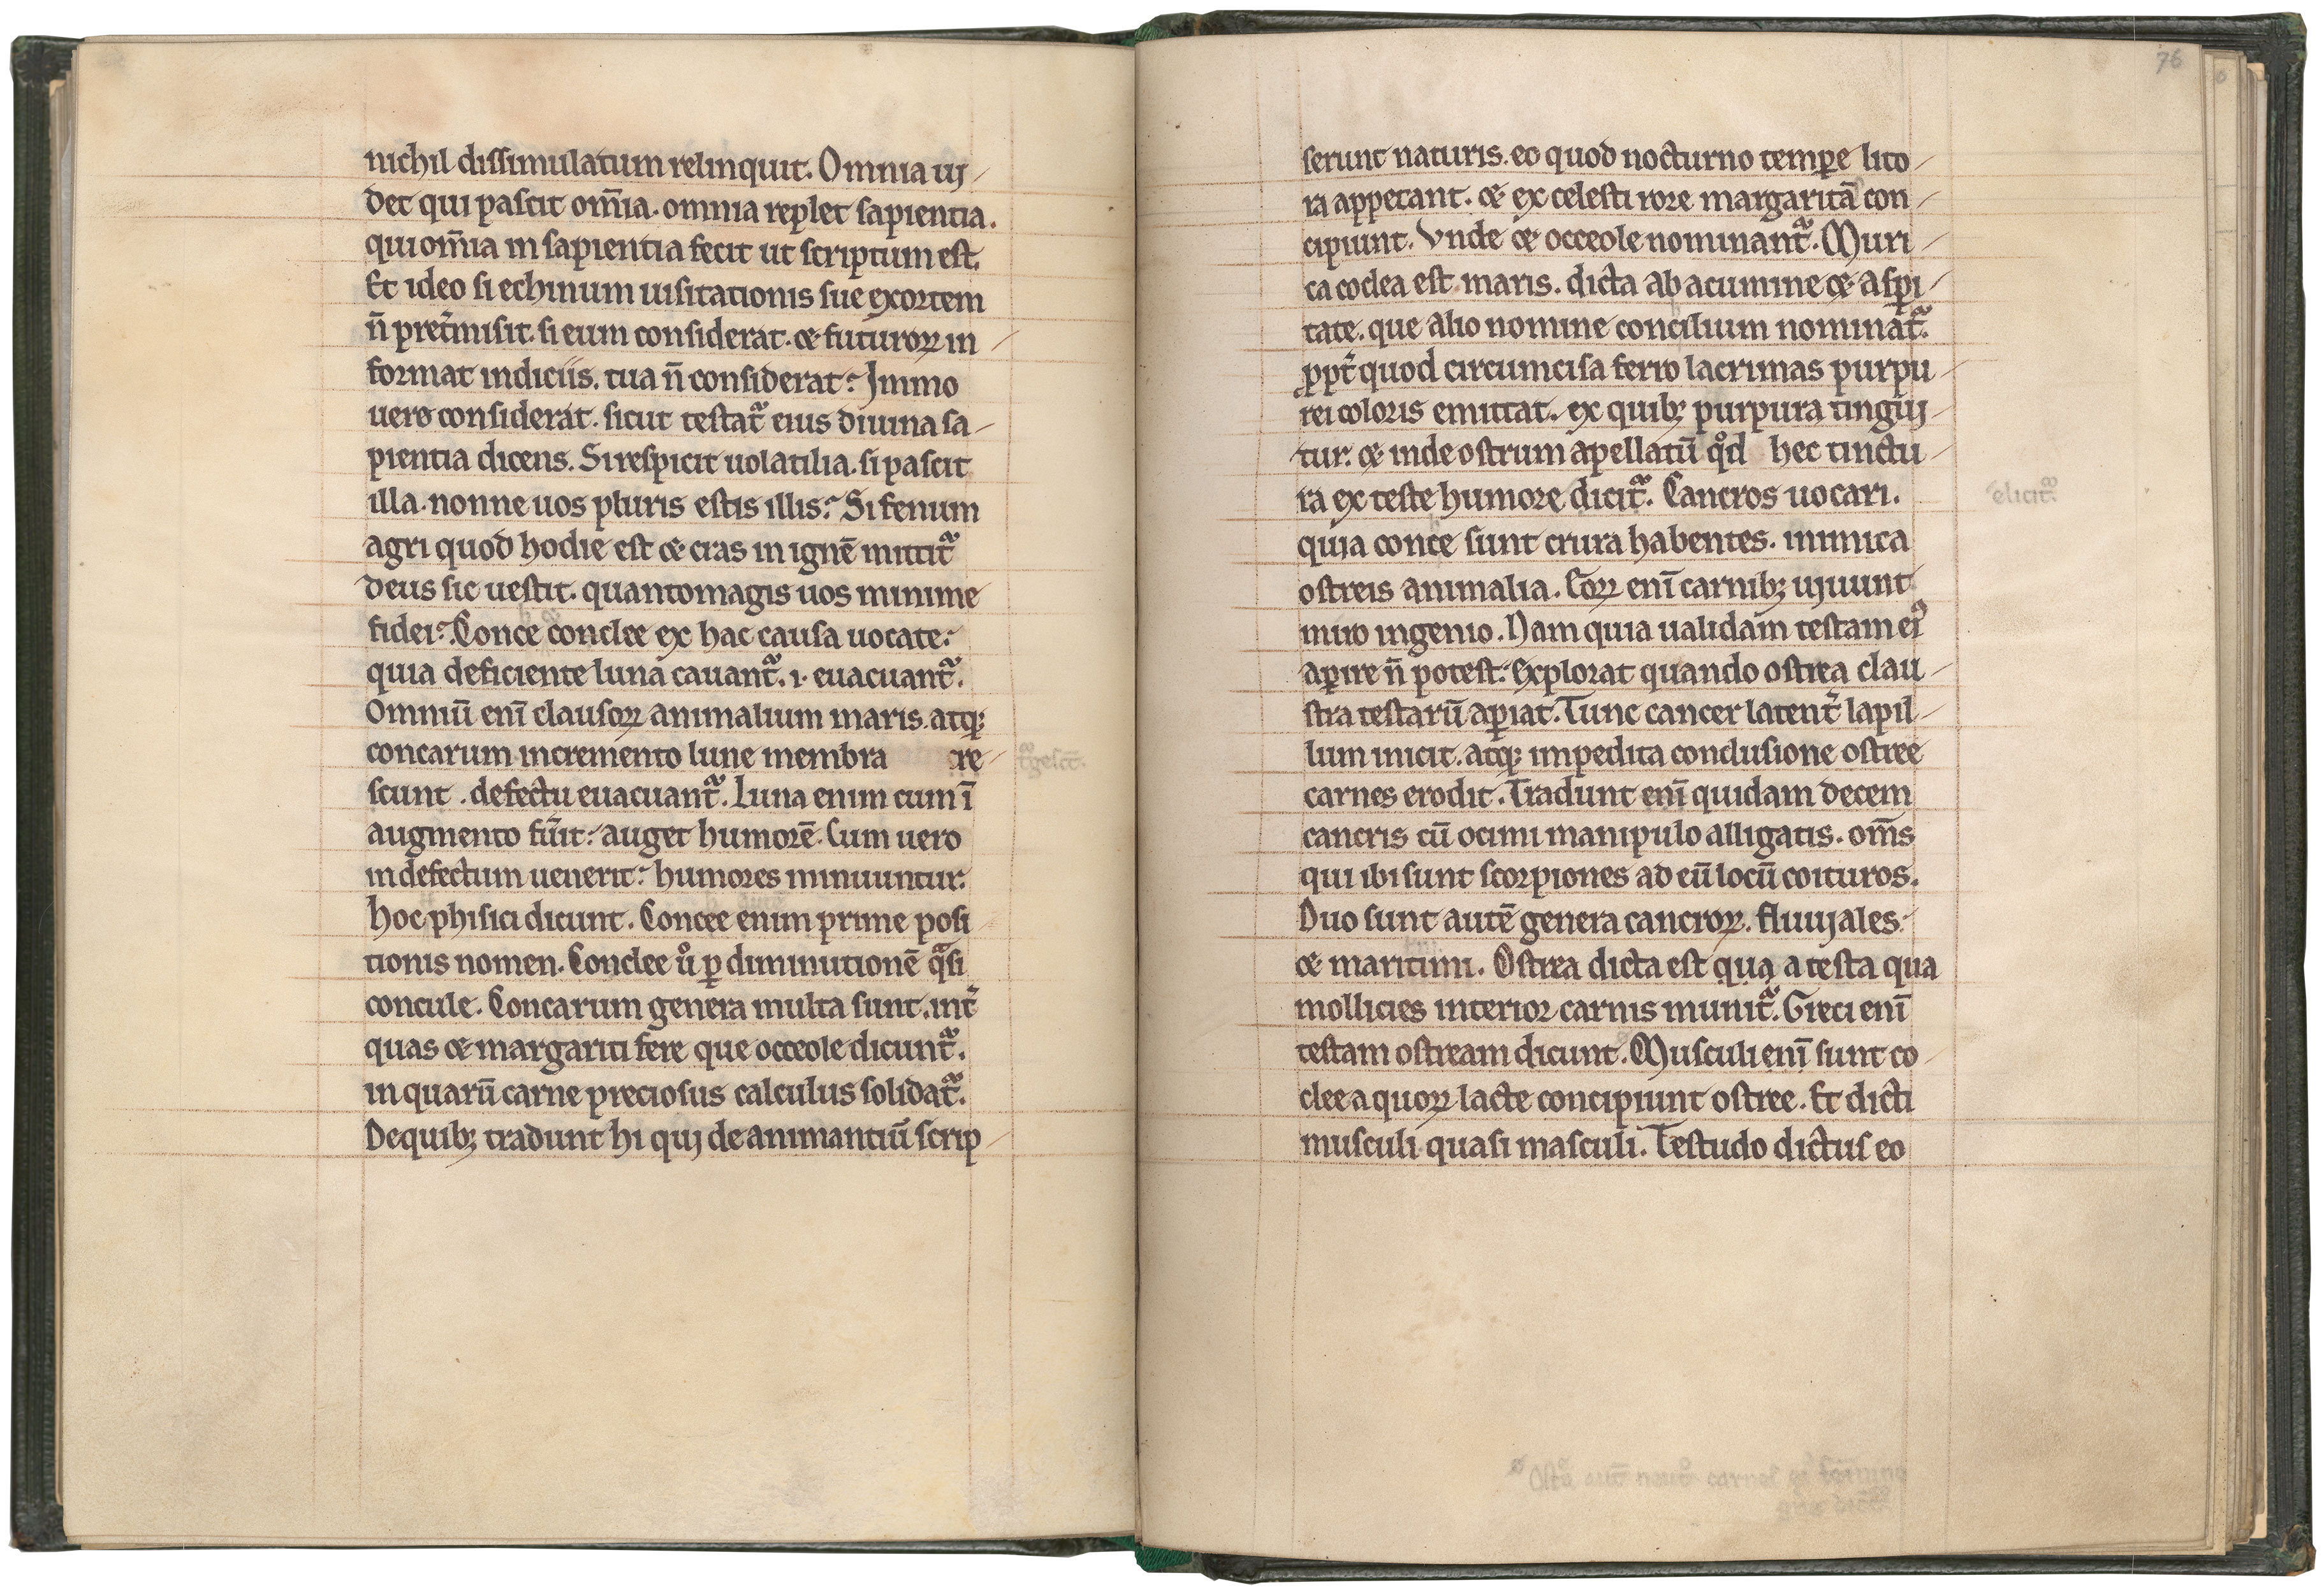 nichil dissimulatum relinquit. Omnia uj
det qui pascit om̄ia. omnia replet sapientia.
qui om̄ia in sapientia fecit ut scriptum est.
Et ideo si echinum uisitationis sue exortem
n̄ pret̾misit. si eum considerat. ⁊ futuroꝝ in
format indiciis. tua n̄ considerat? Immo
uero considerat. sicut testat᷑ eius diuina sa
pientia dicens. Si respicit uolatilia. si pascit
illa. nonne uos pluris estis illis? Si fenum
agri quod hodie est ⁊ cras in ignē mittit᷑
deus sic uestit. quantomagis uos minime
fidei? Conce conclee ex hac causa uocate.
quia deficiente luna cauant᷑. i. euacuant᷑.
Omniū enī clausoꝝ animalium maris. atqꝫ
concarum incremento lune membra cre
scunt. defectu euacuant᷑. Luna enim cum ī
augmento fu̾it. auget humorē. Cum uero
in defectum uenerit. humores minuuntur.
Hoc phisici dicunt. Concee enim prime posi
tionis nomen. Conclee ů ꝑ diminutionē qᷓsi
concule. Concarum genera multa sunt. int̾
quas ⁊ margariti fere que occeole dicunt᷑.
in quarū carne preciosus calculus solidat᷑.
De quibꝫ tradunt hi quj de animantiū scrip
76
serunt naturis. eo quod nocturno tempore lito
ra appetant. ⁊ ex celesti rore margaritā con
cipiunt. Vnde ⁊ occeole nominant᷑. Muri
ca coclea est maris. dicta ab acumine ⁊ aspi
tate. que alio nomine concilium nominat᷑.
ꝓpt̾ quod circumcisa ferro lacrimas purpu
rei coloris emittat. ex quibꝫ purpura tinguj
tur. ⁊ inde ostrum apellatū qͦd hec tinctu
ra ex teste humore dicit᷑. Cancros uocari.
elicit᷑
quia conce sunt crura habentes. inimica
ostreis animalia. Coꝝ enī carnibꝫ ujuunt
miro ingenio. Nam quia ualidam testam ei᷒
aꝑire n̄ potest. explorat quando ostrea clau
stra testarū aꝑiat. Tunc cancer latent̾ lapil
lum inicit. atqꝫ impedita conclusione ostree
carnes erodit. Tradunt enī quidam decem
cancris cū ocimi manipulo alligatis. om̄s
qui ibi sunt scorpiones ad eū locū coituros.
Duo sunt autē genera cancroꝝ. fluujales
⁊ maritimi. Ostrea dicta est qua a testa qua
mollicies interior carnis munit᷑. Greci enī
testam ostream dicunt. Musculi enī sunt co
clee a quoꝝ lacte concipiunt ostree. Et dicti
musculi quasi masculi. Testudo dictus eo